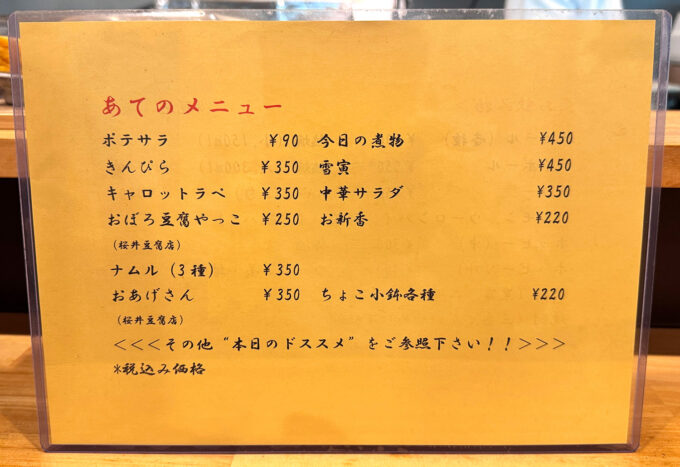 あてのメニュー
ポテサラ ¥90 今日の煮物 ¥450
きんぴら ¥350 雪寅 ¥450
キャロットラペ ¥350 中華サラダ ¥350
おぼろ豆腐やっこ ¥250 お新香 ¥220
(桜井豆腐店)
ナムル(3種) ¥350
おあげさん ¥350 ちょこ小鉢各種 ¥220
(桜井豆腐店)
<<<その他“本日のドススメ”をご参照下さい!!>>>
*税込み価格